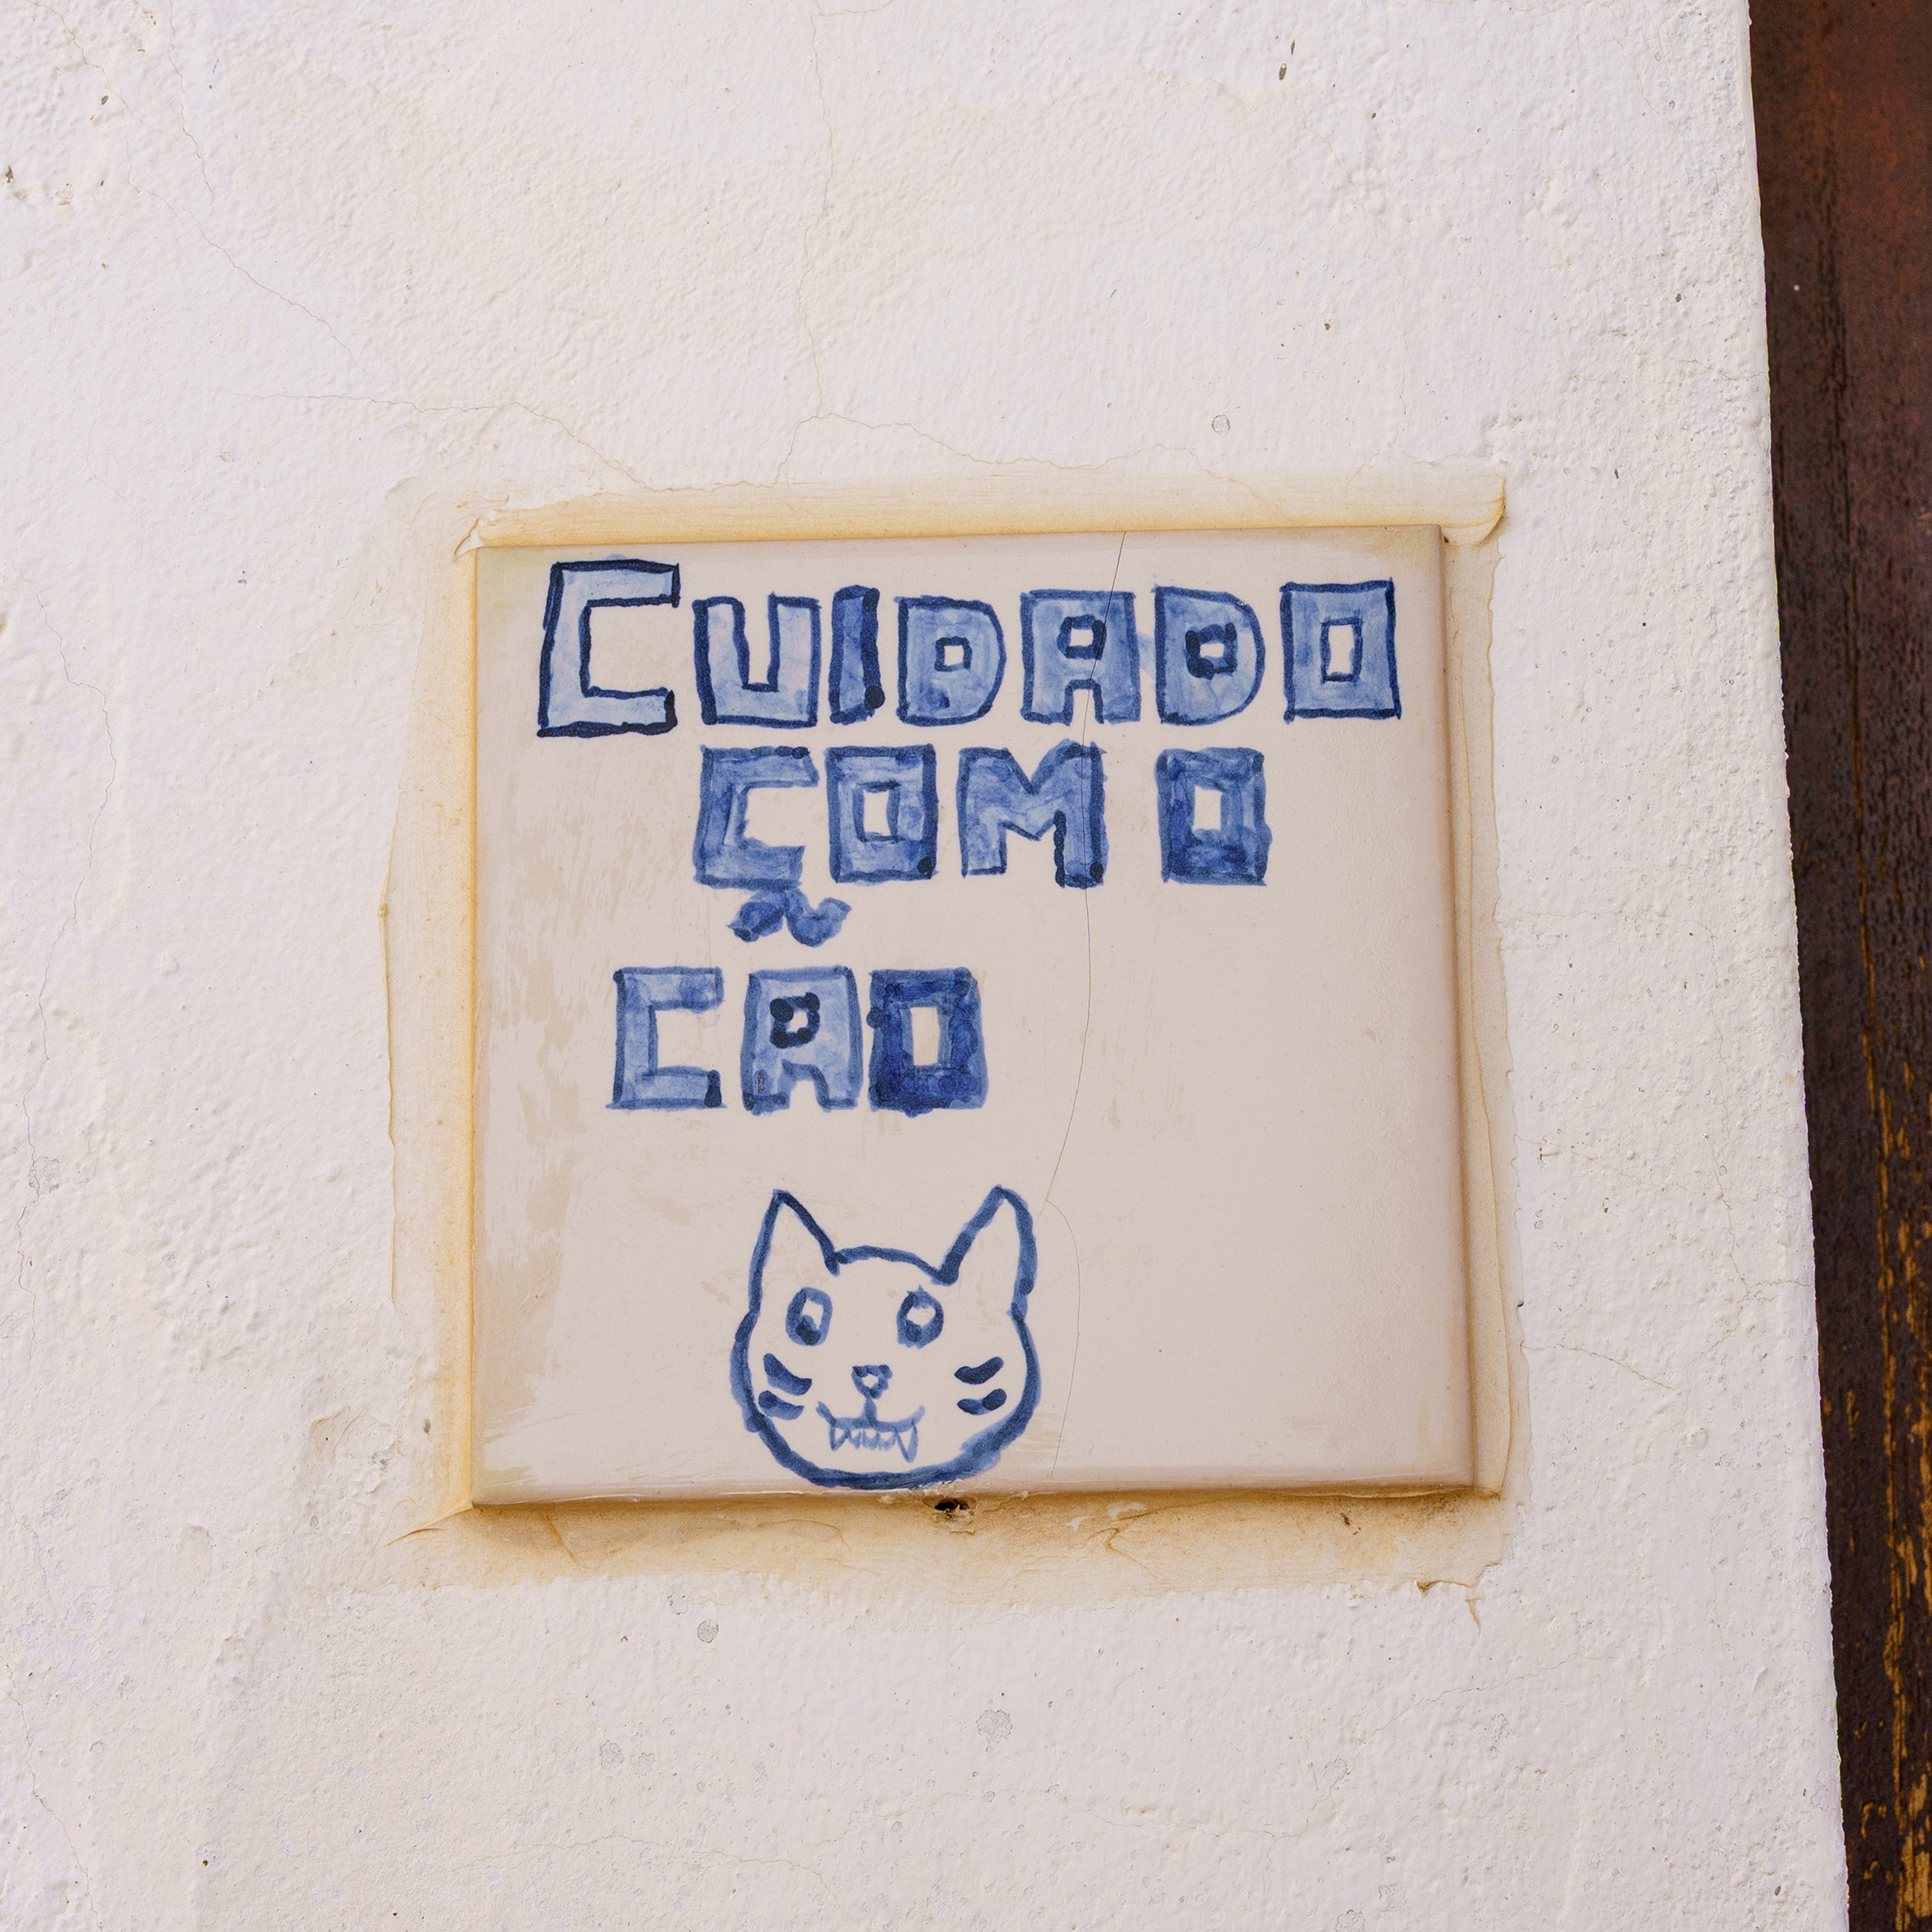 CUIDADO
COM O
CÃO